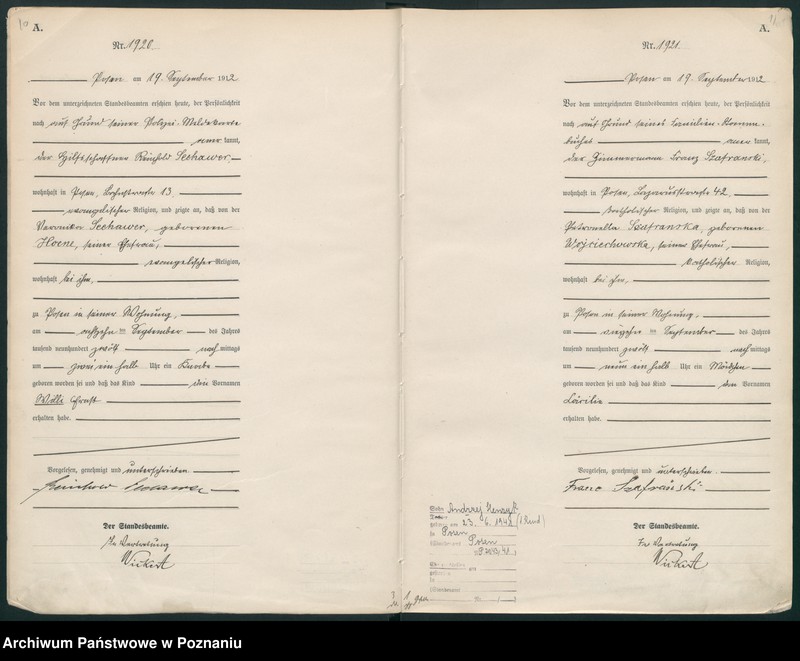 A.
Nr. 1920.
Posen am 19. September 1912
Vor dem unterzeichneten Standesbeamten erschien heute, der Persönlichkeit
nach auf Grund seiner Polizei-Meldekarte
kannt,
der Hilfsschaffner Reinhold Seehawer
wohnhaft in Posen, 13
evangelischer Religion, und zeigte an, daß von der
Veronika Seehawer, geborenen
Hoene, seiner Ehefrau,
evangelischer Religion,
wohnhaft bei ihm,
zu Posen in seiner Wohnung,
am achtzehn ten September des Jahres
tausend neunhundert zwölf nach mittags
um zwei ein halb Uhr ein Knabe
geboren worden sei und daß das Kind den Vornamen
Willi Ernst
erhalten habe.
Vorgelesen, genehmigt und unterschrieben
Reinhold Seehawer
Der Standesbeamte.
In Vertretung
A.
Nr. 1921.
Posen am 19. September 1912
Vor dem unterzeichneten Standesbeamten erschien heute, der Persönlichkeit
nach auf Grund seines Familien-Stamm-
buches kannt,
der Zimmermann Franz Szafranski,
wohnhaft in Posen, Lazarusstraße 42
katholischer Religion, und zeigte an, daß von der
Petronella Szafranska, geborenen
Wojciechowska, seiner Ehefrau,
katholischer Religion,
wohnhaft bei ihm,
zu Posen in seiner Wohnung,
am ten September des Jahres
tausend neunhundert zwölf nach mittags
um neun ein halb Uhr ein Mädchen
geboren worden sei und daß das Kind den Vornamen
Cäcilie
erhalten habe.
Vorgelesen, genehmigt und unterschrieben
Franz Szafrański
Der Standesbeamte.
In Vertretung
Andrzej Henryk
23. 6. 1942 (1. Kind)
Posen
Posen
Archiwum Państwowe w Poznaniu